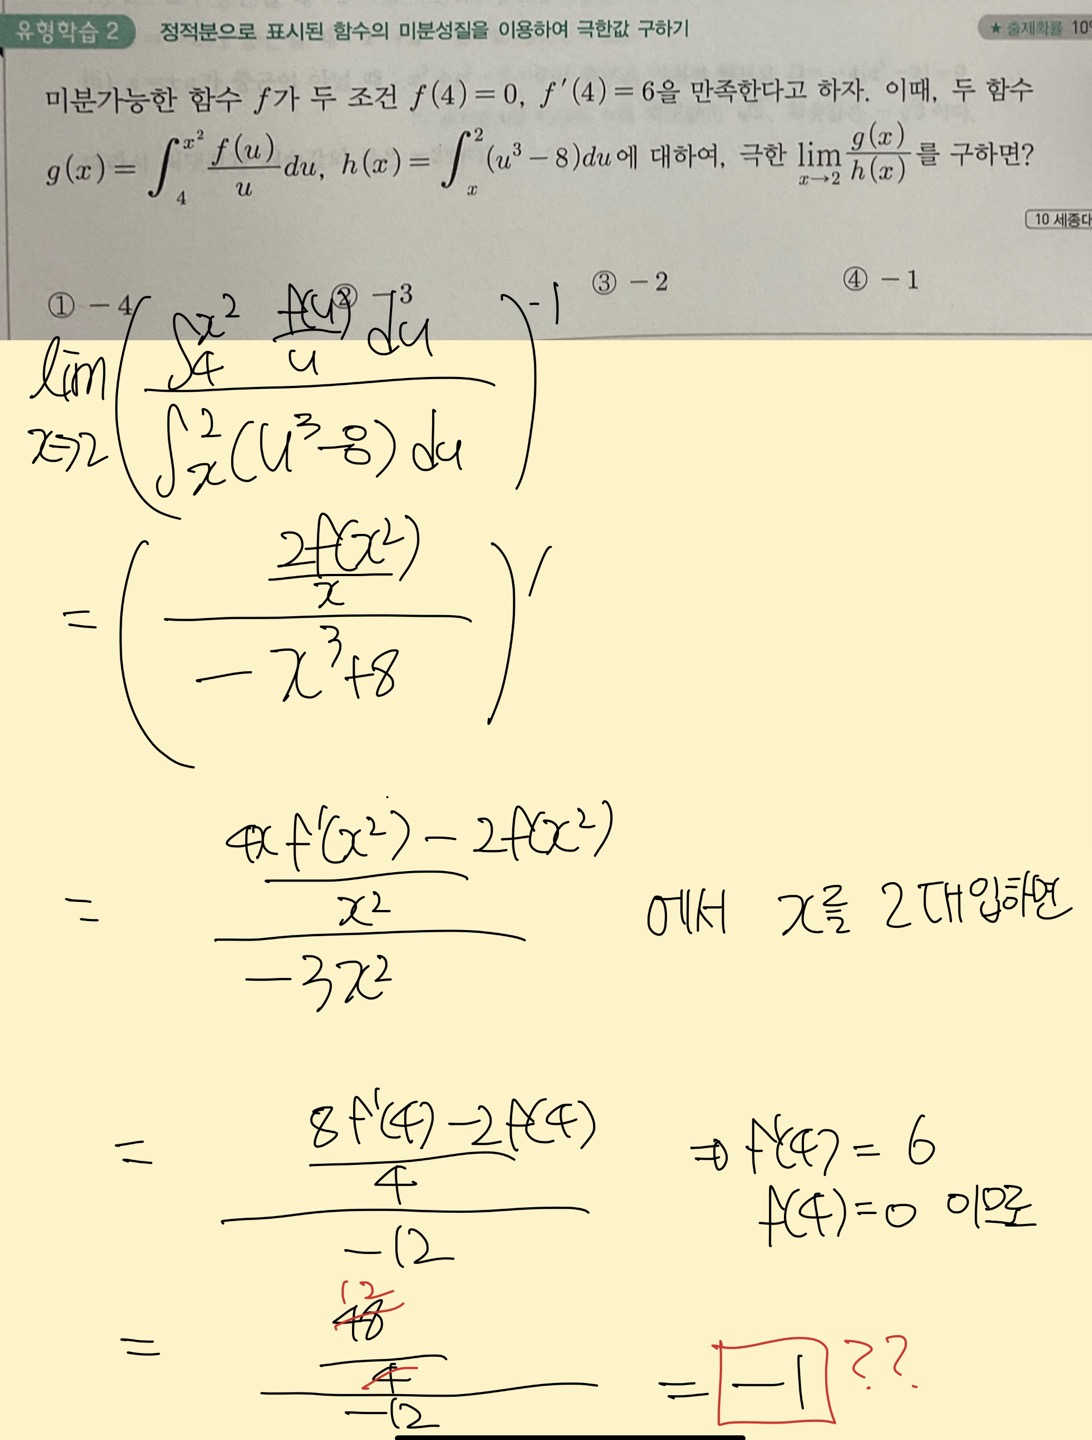 유형학습 2 정적분으로 표시된 함수의 미분성질을 이용하여 극한값 구하기 ★ 출제확률 10
미분가능한 함수 f가 두 조건 f(4)=0, f'(4)=6을 만족한다고 하자. 이때, 두 함수
g(x)=∫_4^{x^2} f(u)/u du, h(x)=∫_x^2 (u^3-8)du에 대하여, 극한 lim_{x→2} g(x)/h(x)를 구하면?
10 세종대
① -4 ② -3 ③ -2 ④ -1
lim_{x→2} (∫_4^{x^2} f(u)/u du / ∫_x^2 (u^3-8) du)^{-1}
= ((2f(x^2)/x) / (-x^3+8))'
= ((4xf'(x^2)-2f(x^2))/x^2) / (-3x^2) 에서 x를 2 대입하면
= ((8f'(4)-2f(4))/4) / (-12) ⇒ f'(4)=6
f(4)=0 이므로
12
= (48/4) / (-12) = -1 ??